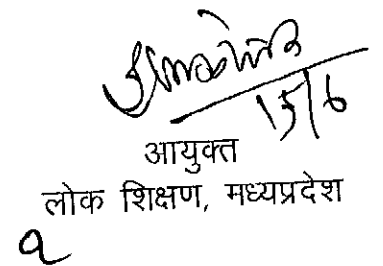 15/6
आयुक्त
लोक शिक्षण, मध्यप्रदेश